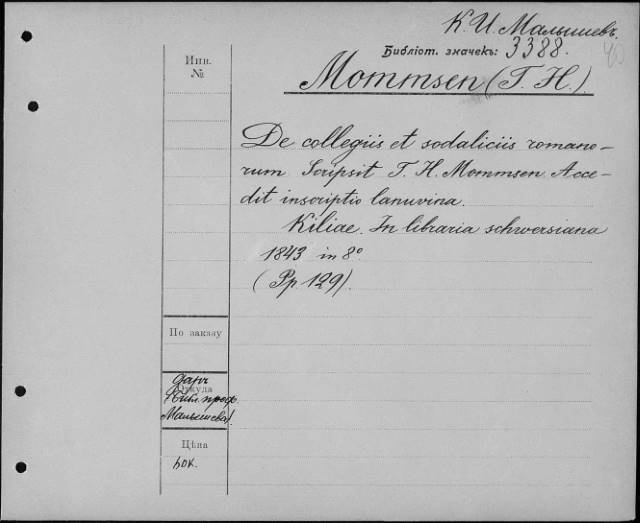 К. И. Малышевъ
Библіот. значекъ: 3388.
40
Инв.
№
Mommsen (T. H.)
De collegiis et sodaliciis romano-
rum Scripsit T. H. Mommsen Acce-
dit inscriptio lanuvina.
Kiliae. In libraria schwersiana
1843 in 8º
(Pp 129).
По заказу
Откуда
даръ
библ. проф.
Малышева
Цѣна
50к.